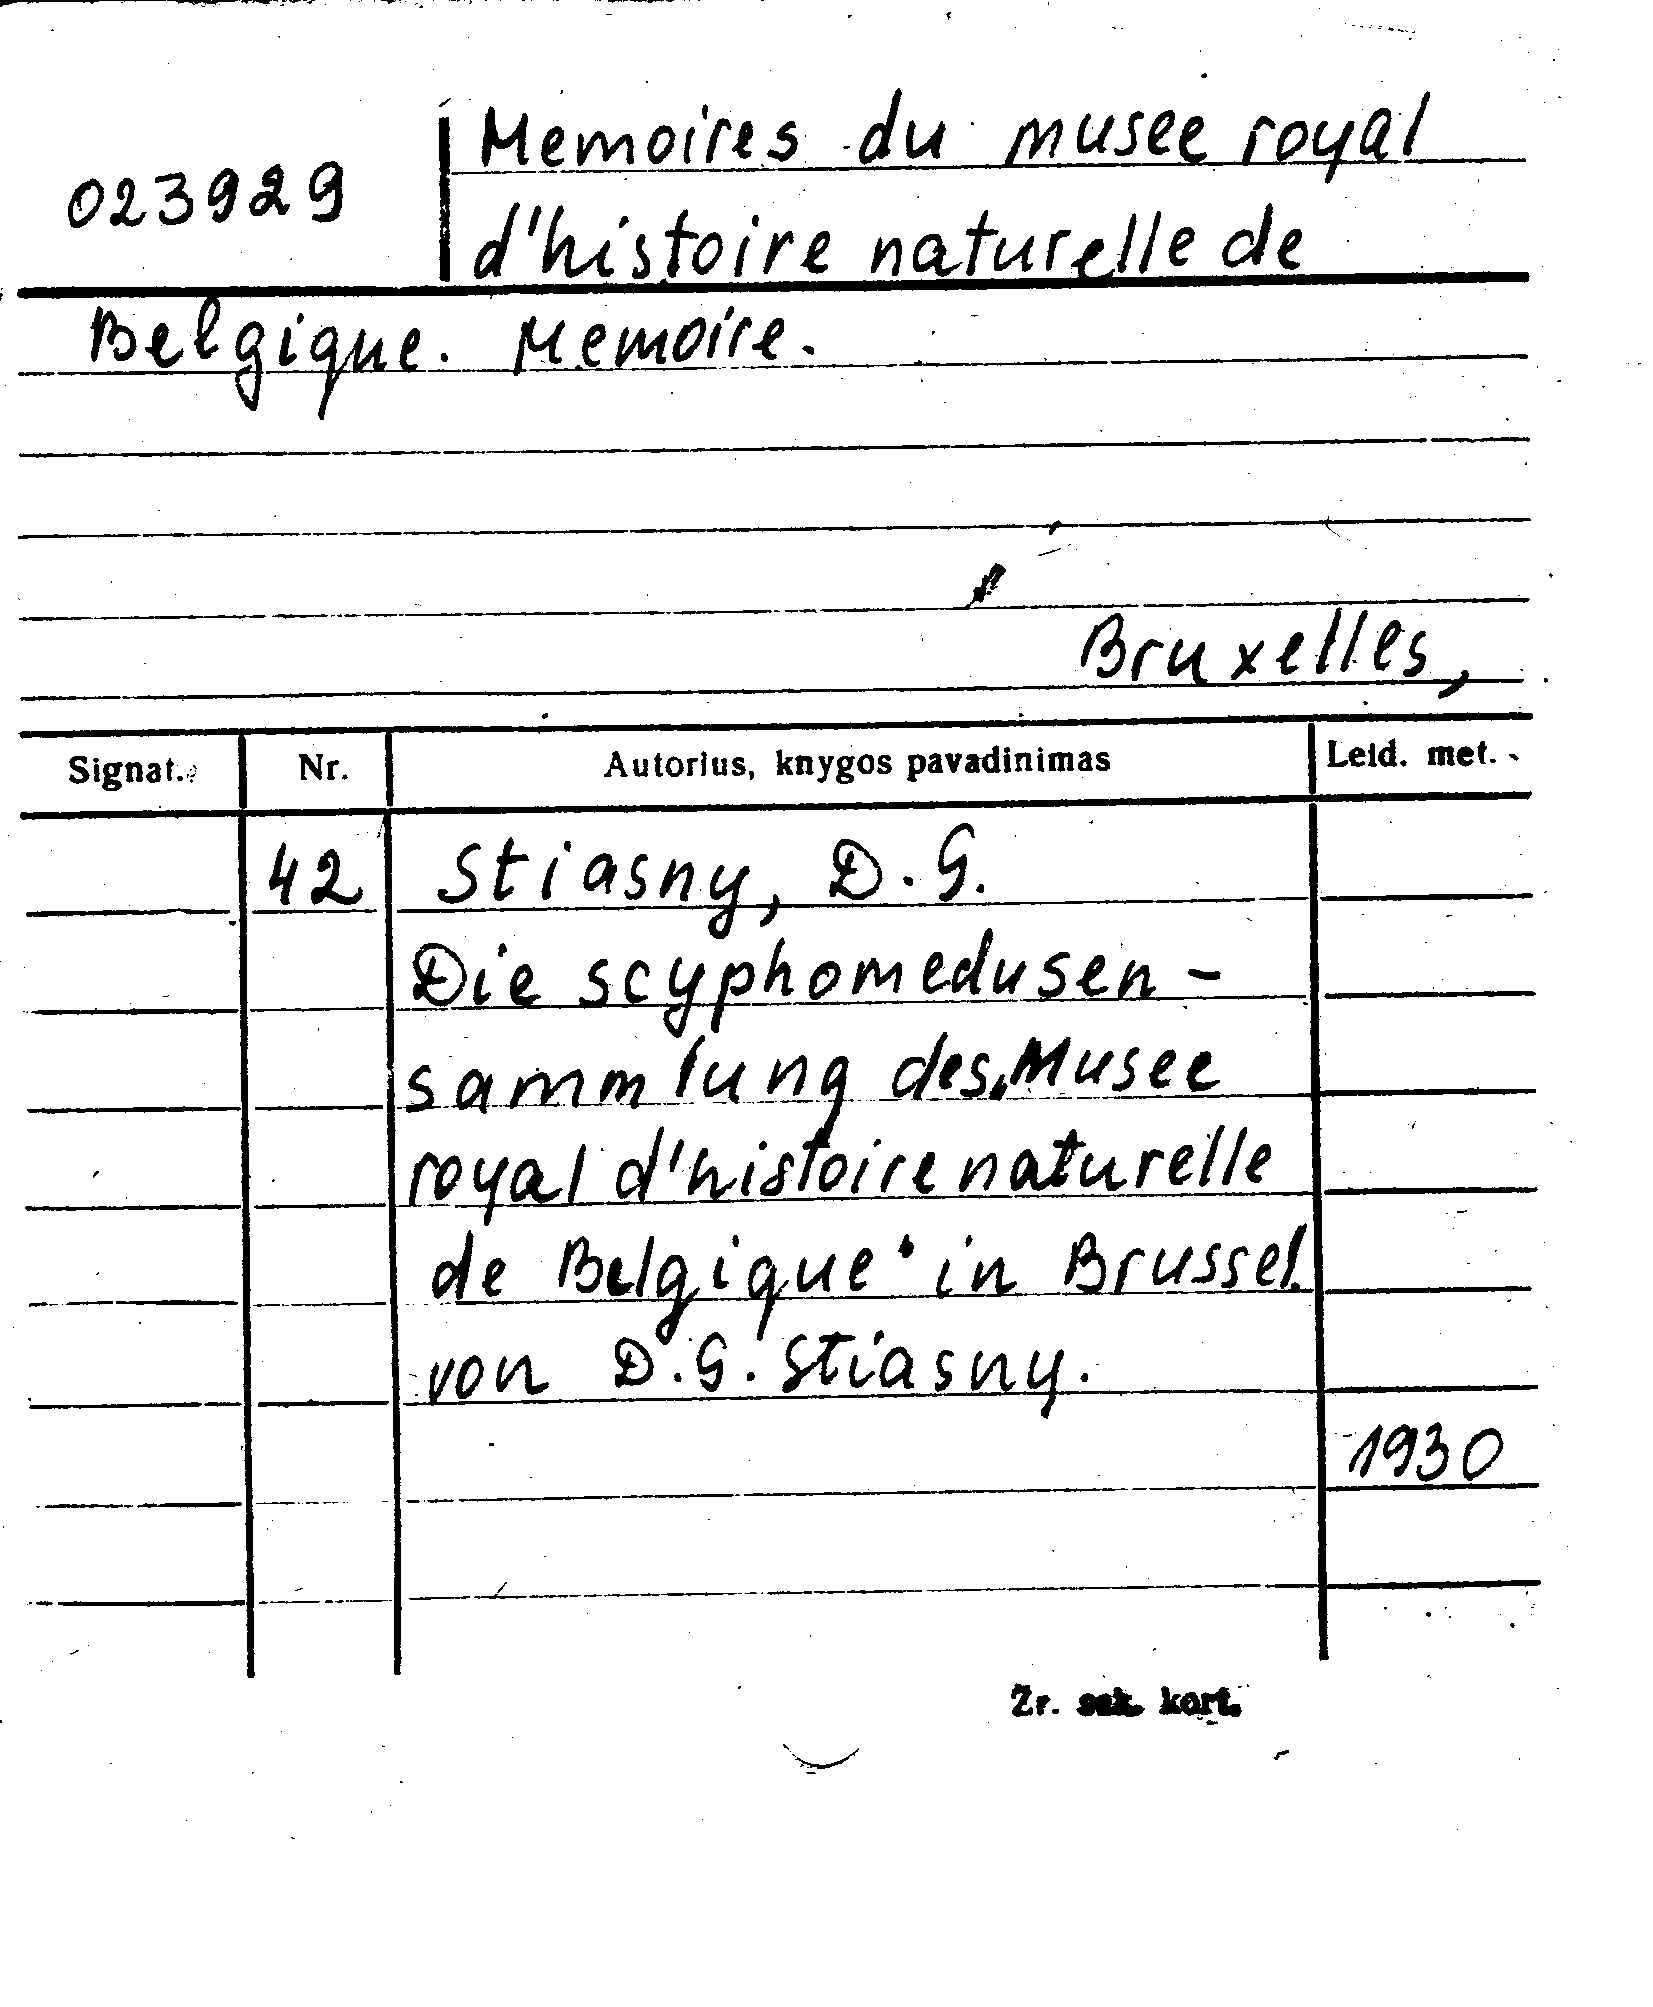 023929
Memoires du musee royal
d'histoire naturelle de
Belgique. Memoire.
Bruxelles,
Signat. Nr. Autorius, knygos pavadinimas Leid. met.
42 Stiasny, D. G.
Die scyphomedusen -
sammlung des „Musee
royal d'histoire naturelle
de Belgique" in Brussel.
von D. G. Stiasny.
1930
Žr. sek. kort.